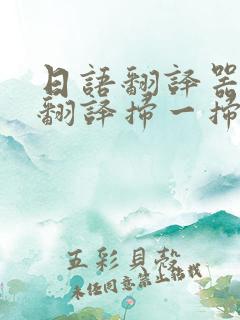 日語翻譯器
翻譯掃一掃
五彩貝殼
未經同意禁止轉載